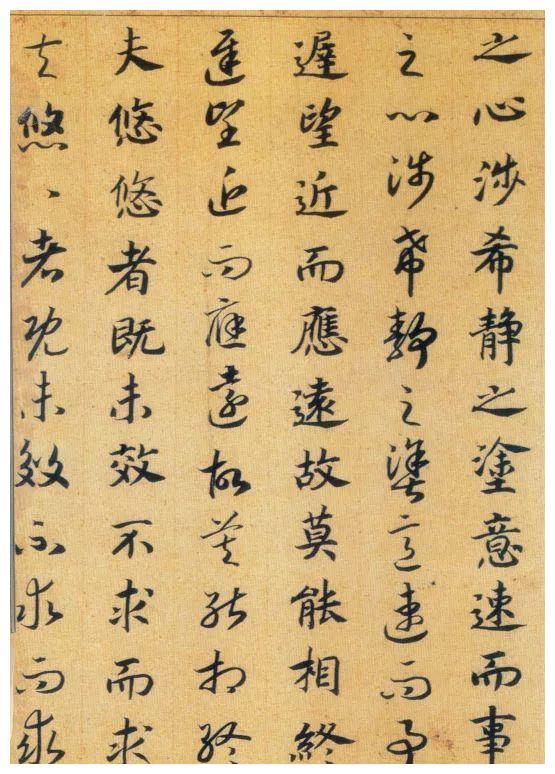 之心涉希静之塗意速而事
之心涉希静之塗意速而事
遲望近而應遠故莫能相終
遲望近而應遠故莫能相終
夫悠悠者既未效不求而求
夫悠、者既未效不求而求